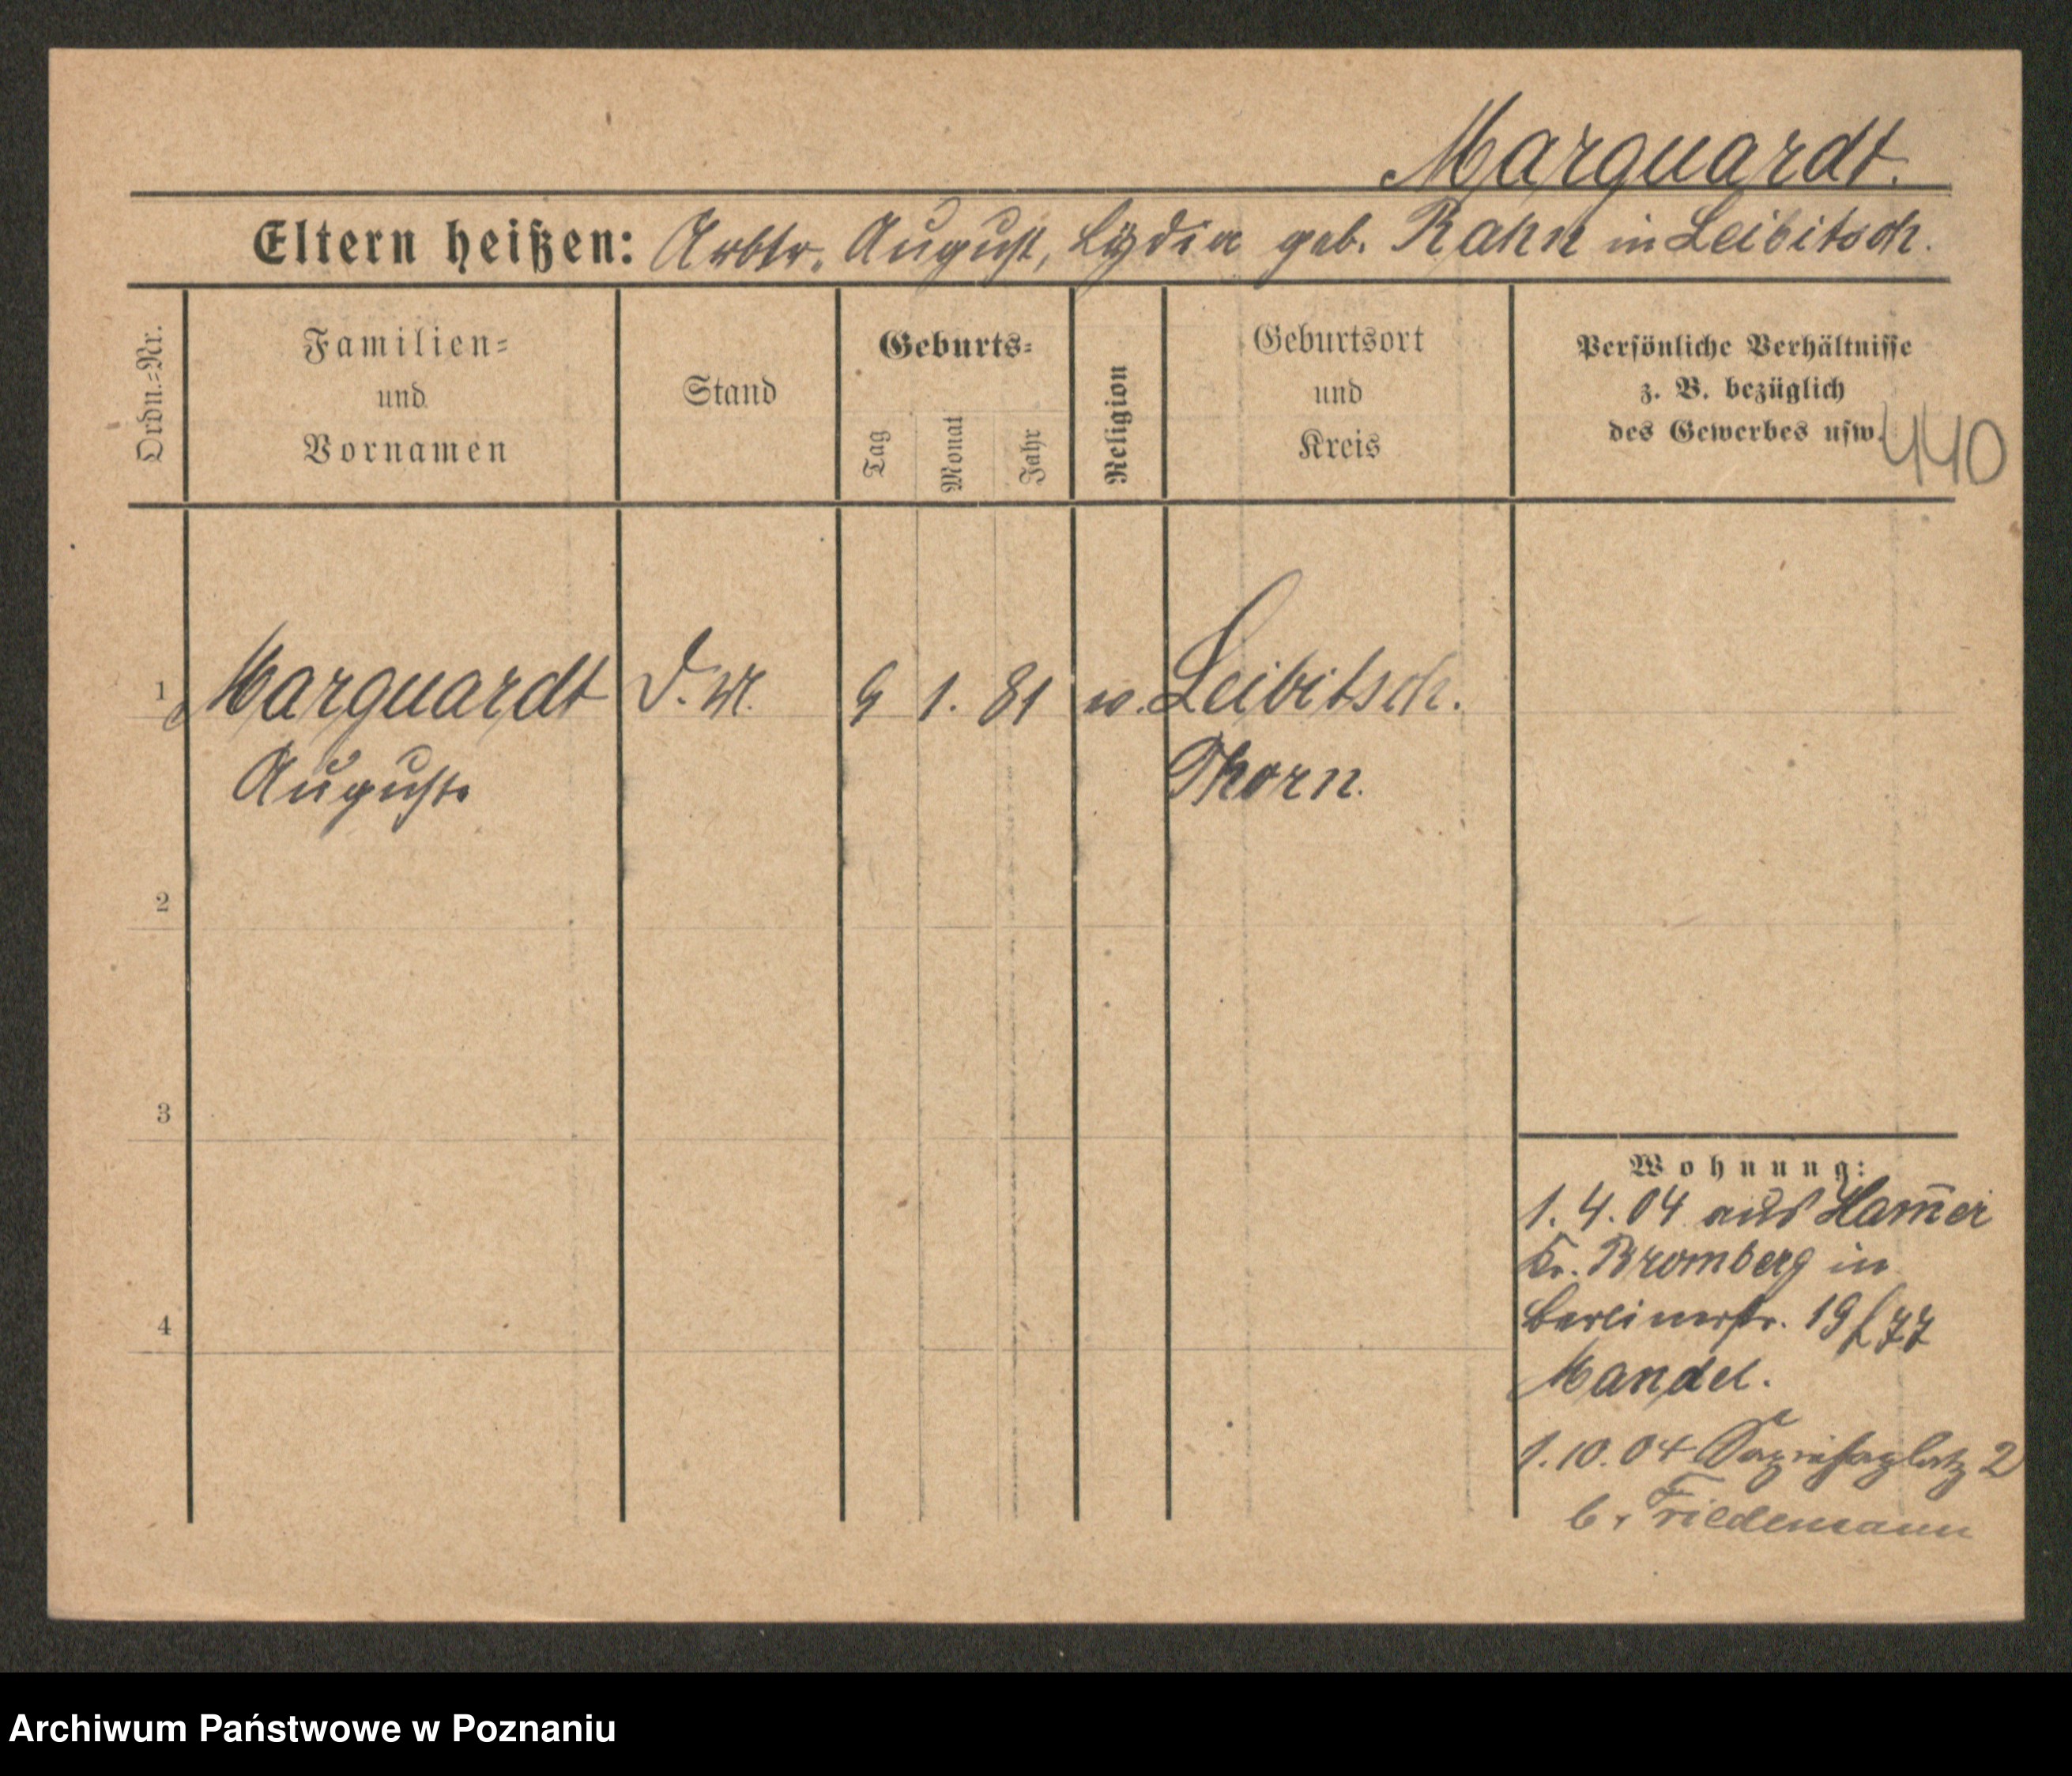 Marquardt.
Eltern heißen: Arbtr. August, Lydia geb. Rahn in Leibitsch.
Ordn.=Nr.
Familien=
und
Vornamen
Stand
Geburts=
Tag
Monat
Jahr
Religion
Geburtsort
und
Kreis
Persönliche Verhältnisse
z. B. bezüglich
des Gewerbes usw.
440
1 Marquardt D. M. 9 1. 81 ev. Leibitsch.
Auguste Thorn.
2
3
4
Wohnung:
1. 4. 04 aus Ham̅er
Kr. Bromberg in
Berlinerstr. 19
Mandel.
1. 10. 04 Sapiehaplatz 2
b. Friedemann
Archiwum Państwowe w Poznaniu